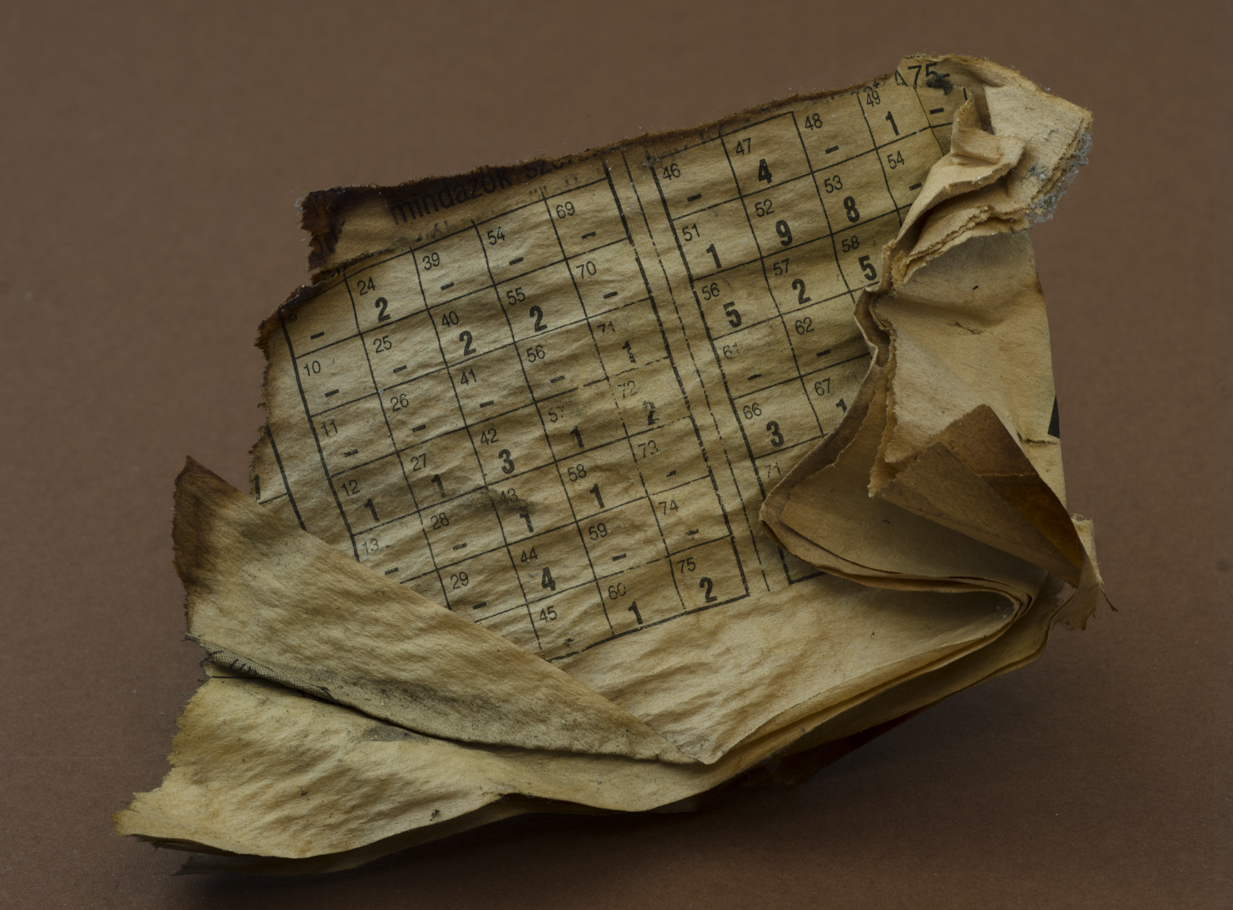 mindazok
75
24 39 54 69
– 2 – – –
10 25 40 55 70
– – 2 2 –
11 26 41 56 71
– – – – 1
12 27 42 57 72
1 1 3 1 2
13 28 43 58 73
– – 1 1 –
29 44 59 74
– 4 – –
45 60 75
1 2
46 47 48 49
– 4 – 1 –
51 52 53 54
1 9 8 –
56 57 58
5 2 5
61 62
– –
66 67
3 1
71